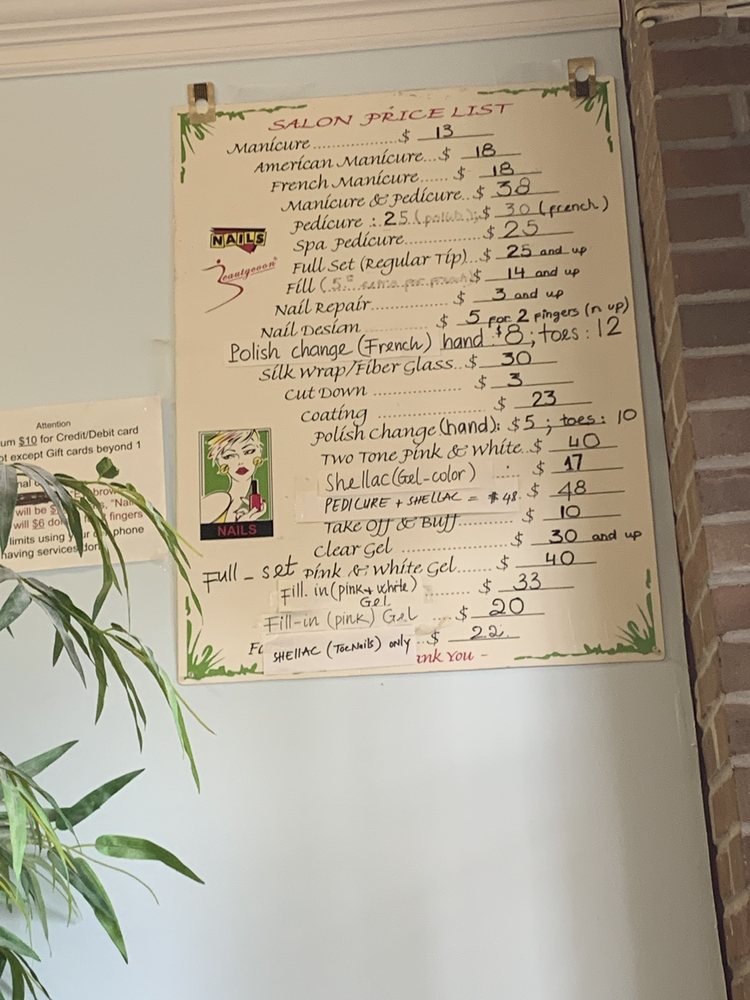 SALON PRICE LIST
Manicure $ 13
American Manicure $ 18
French Manicure $ 18
Manicure & Pedicure $ 38
Pedicure : 25 (polish); $ 30 (french)
Spa Pedicure $ 25
Full Set (Regular Tip) $ 25 and up
Fill $ 14 and up
Nail Repair $ 3 and up
Nail Design $ 5 for 2 fingers (n up)
Polish change (French) hand : $8 ; toes : 12
Silk Wrap/Fiber Glass $ 30
Cut Down $ 3
Coating $ 23
Polish Change (hand): $5 ; toes : 10
Two Tone Pink & White $ 40
Shellac (Gel-color) $ 17
PEDICURE + SHELLAC = $48. $ 48
Take Off & Buff $ 10
Clear Gel $ 30 and up
Full - set Pink & White Gel $ 40
Fill. in (pink + white) Gel $ 33
Fill-in (pink) Gel $ 20
SHELLAC (Toe Nails) only $ 22
ank You -
NAILS
Beautycoon
NAILS
Attention
um $10 for Credit/Debit card
ot except Gift cards beyond 1
brow
will be
will $6 fingers
limits using phone
having services